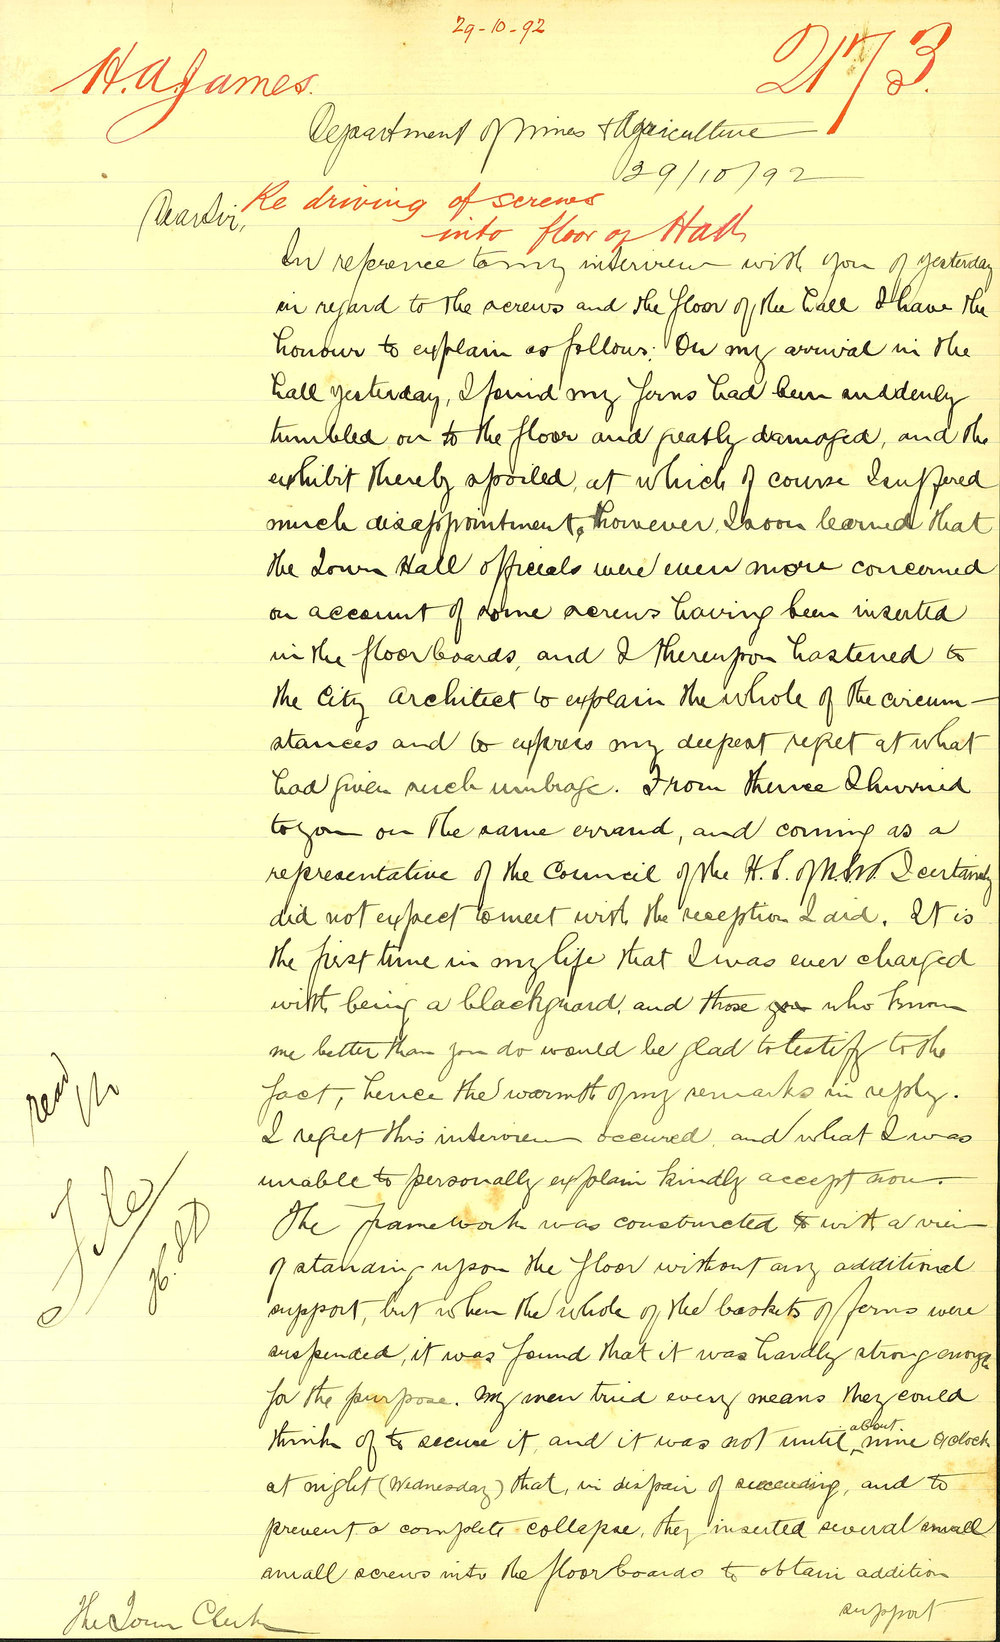 29-10-92
H.A. James.
2173.
Department of Mines & Agriculture
29/10/92
Re driving of screws
into floor of Hall
Dear Sir,
In reference to my interview with you of yesterday
in regard to the screws and the floor of the hall I have the
honour to explain as follows: On my arrival in the
hall yesterday, I found my ferns had been suddenly
tumbled on to the floor and greatly damaged, and the
exhibit thereby spoiled, at which of course I suffered
much disappointment, however, I soon learned that
the Town Hall officials were even more concerned
on account of some screws having been inserted
in the floor boards, and I thereupon hastened to
the City Architect to explain the whole of the circum-
stances and to express my deepest regret at what
had given such umbrage. From thence I hurried
to you on the same errand, and coming as a
representative of the Council of the H.S. of N.S.W. I certainly
did not expect to meet with the reception I did. It is
the first time in my life that I was ever charged
with being a blackguard, and those you who know
me better than you do would be glad to testify to the
fact, hence the warmth of my remarks in reply.
I regret this interview occured, and what I was
unable to personally explain kindly accept now.
The framework was constructed to with a view
of standing upon the floor without any additional
support, but when the whole of the baskets of ferns were
suspended, it was found that it was hardly strong enough
for the purpose. My men tried every means they could
think of to secure it, and it was not until about nine O'clock
at night (Wednesday) that, in dispair of succeeding, and to
prevent a complete collapse, they inserted several small
small screws into the floor boards to obtain addition
support
The Town Clerk
read
File